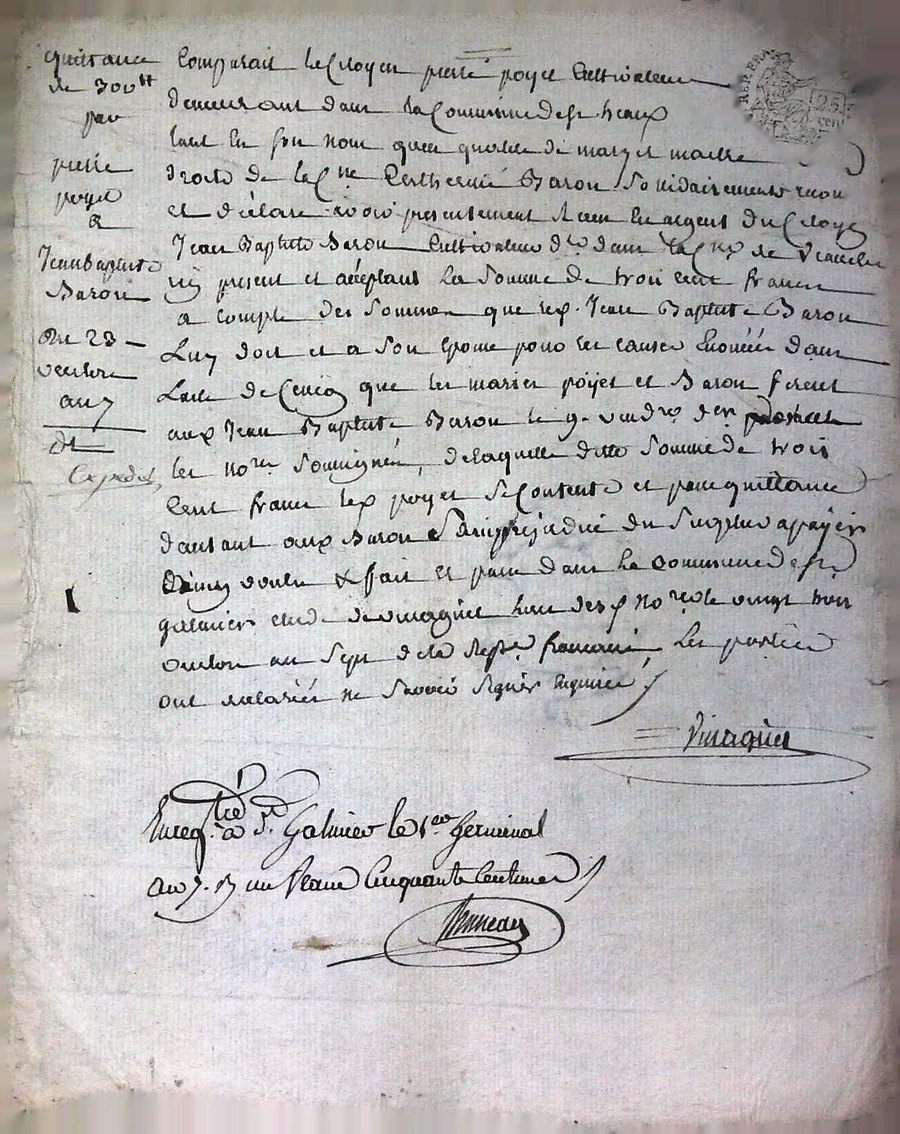 quittance
de 300tt
par
pierre
poyet
a
Jean Baptiste
Baron
Du 23
ventose
an 7
dt
Expedié
Comparait le Citoyen pierre poyet Cultivateur
demeurant dans la Commune de st heaux
tant en son nom quen qualité de mary et maitre
droits de la Cne Catherine Baron solidairement
et déclare avoir presentement Reçu en argent du Citoyen
Jean Baptiste Baron Cultivateur dt dans la Cne de
icy present et acceptant La Somme de trois cent francs
a compte des Sommes que led. Jean Baptiste Baron
Luy doit et a son epouse pour les causes Enoncées dans
Lacte de que les mariés poyet et Baron firent
aux Jean Baptiste Baron le 9 vendre der
les nores Soussignés, delaquelle ditte Somme de trois
Cent francs led poyet se Contente et pour quittance
dautant aux Baron Sans prejudice du Surplus a payer
Dainsy voulu & fait et passé dans la Commune de st
galmier etude de vinagnier lun des d nores le vingt trois
ventose an Sept de la Repe francaise, Les parties
ont declarées ne Savoir Signer Enquises
Vinagnier
Enregtré à St Galmier le 1er Germinal
an 7. R un franc Cinquante Centimes
REP. FRA
25
cen